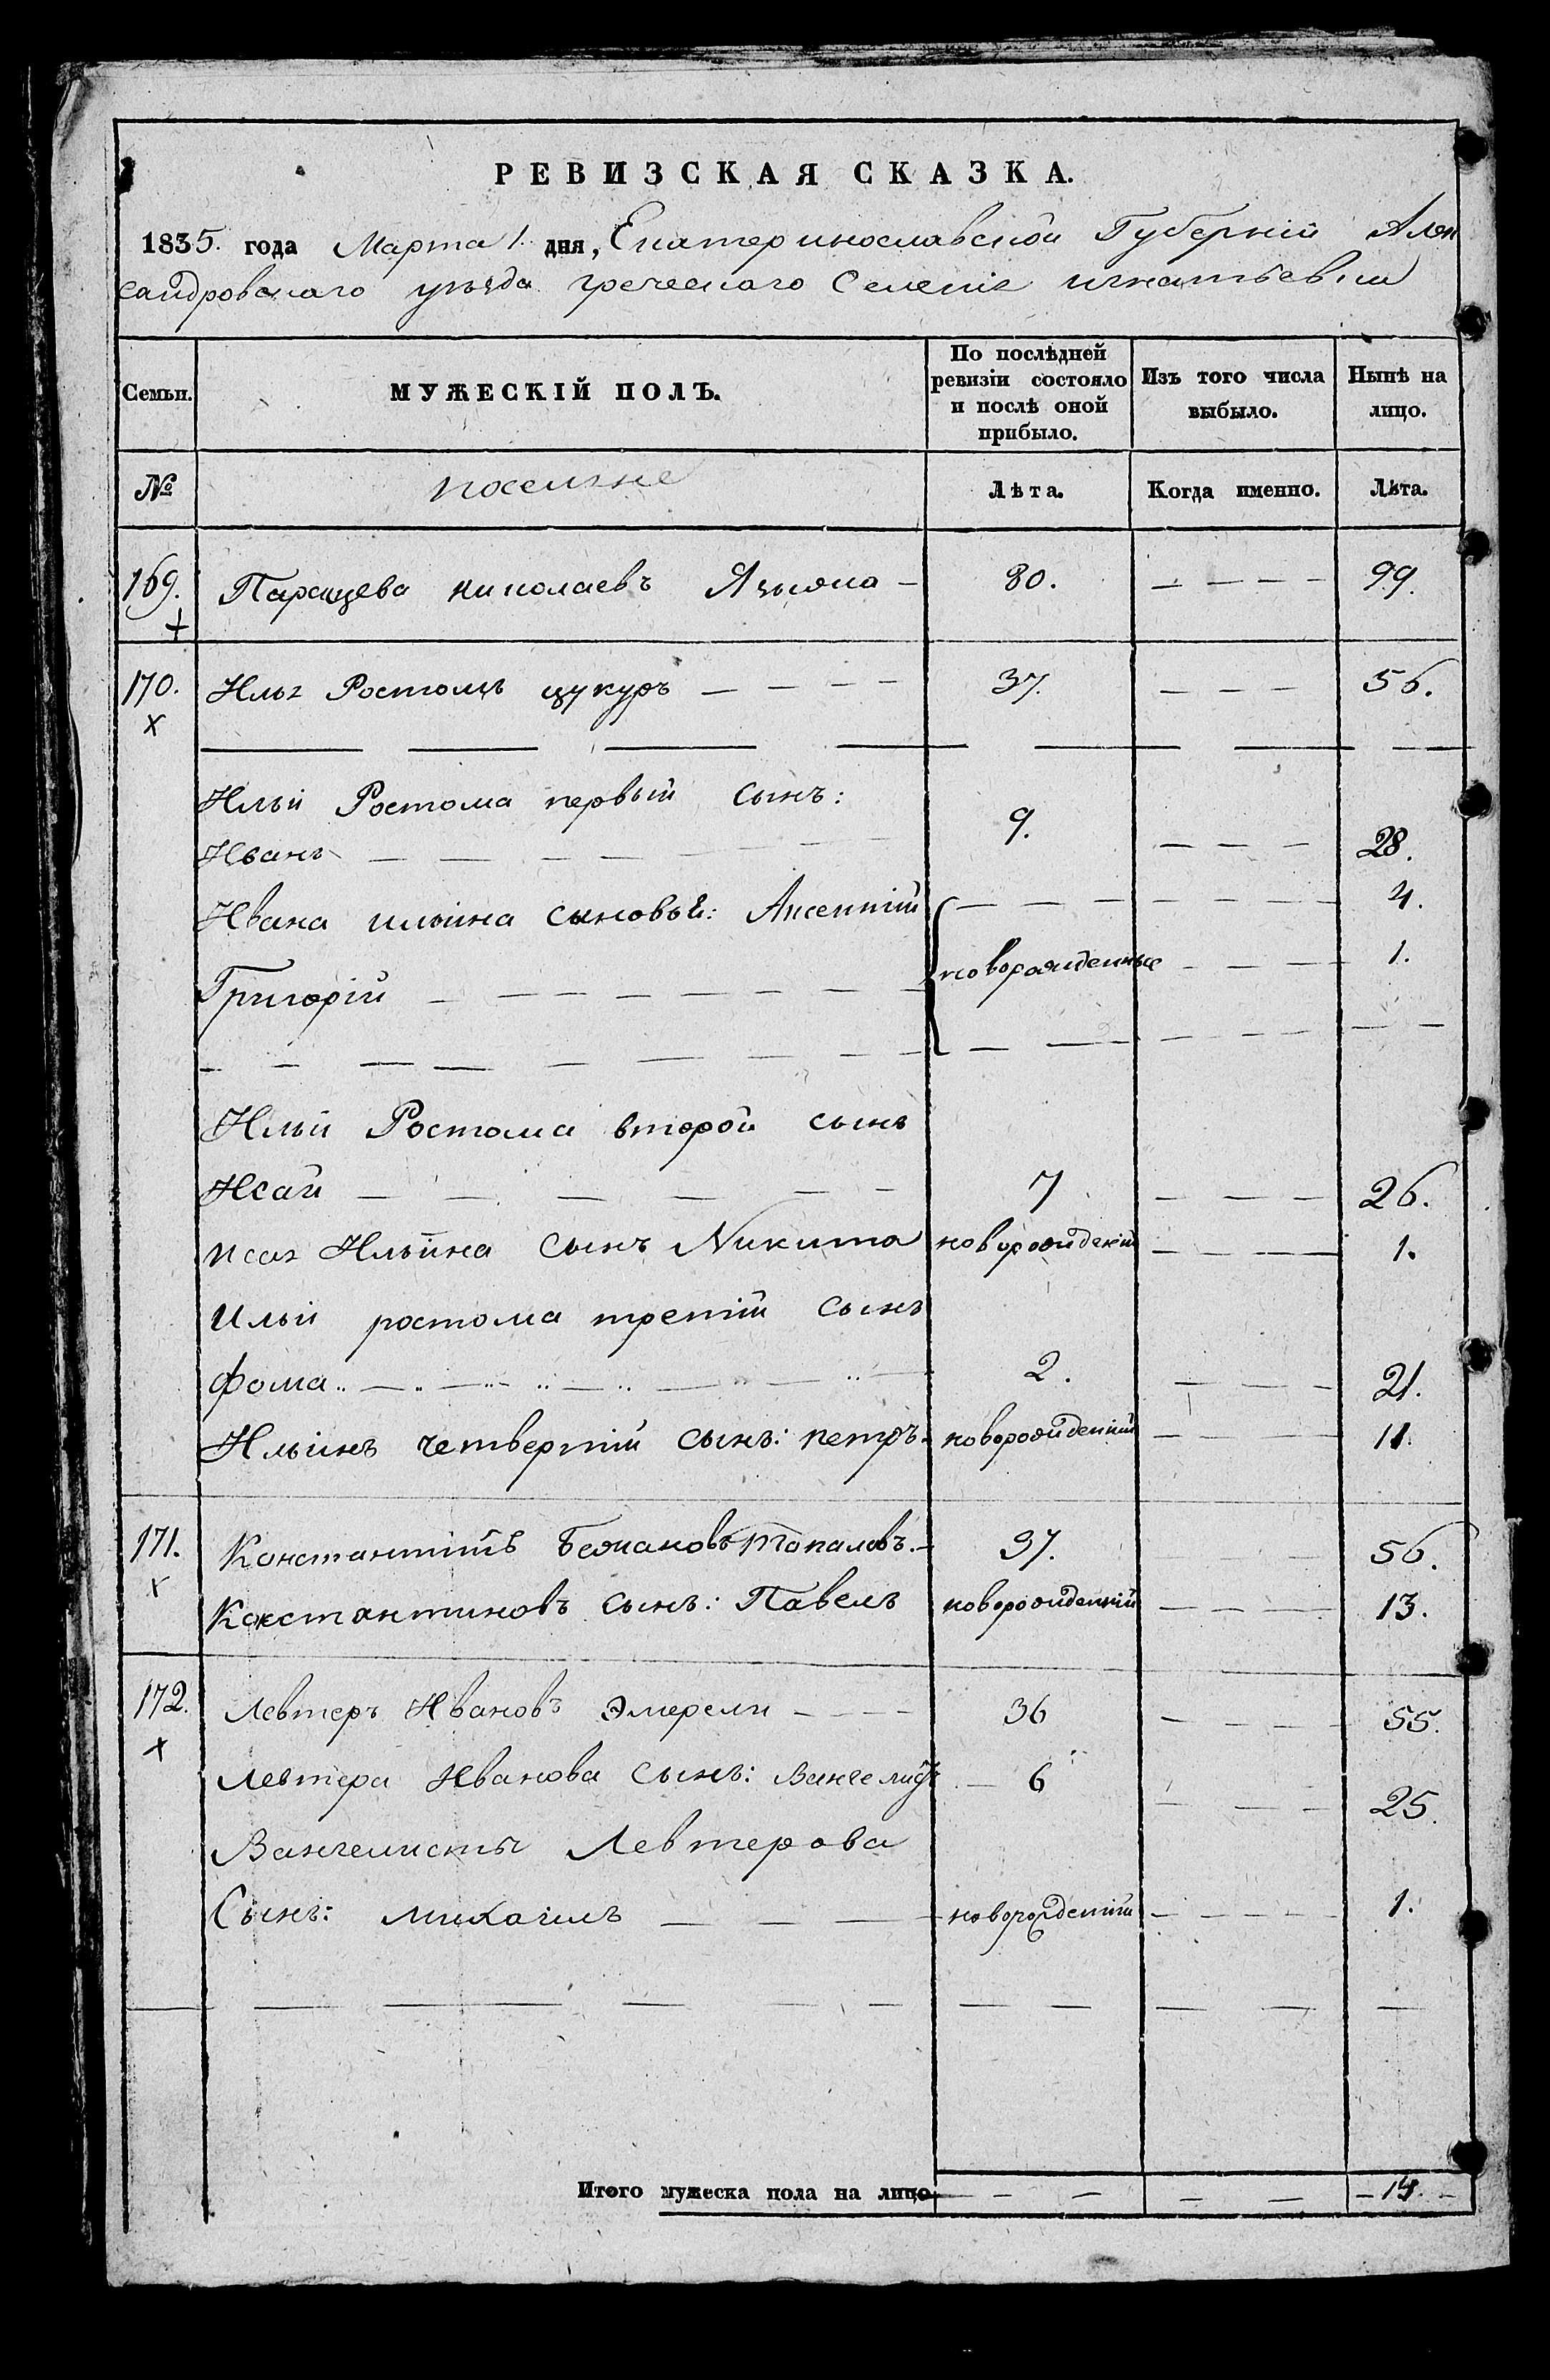 РЕВИЗСКАЯ СКАЗКА.
1835. года Марта 1. дня, Екатеринославской Губерніи Алек
сандровскаго уѣзда греческаго Селенія игнатьевки
Семьи. МУЖЕСКІЙ ПОЛЪ. По послѣдней ревизіи состояло и послѣ оной прибыло. Изъ того числа выбыло. Нынѣ на лицо.
№ поселяне Лѣта. Когда именно. Лѣта.
169. Николаевъ 80. — — — — 99.
170. Илья Ростомъ цукуръ — — — — 37. — — — 56.
Ильи Ростома первый сынъ:
Иванъ — — — — 9. — — — 28.
Ивана ильина сыновья: Аксентій — — — — — — — 4.
Григорій — — — — — — — новорожденные — — — 1.
Ильи Ростома второй сынъ
Исай — — — — — — 7 — — — 26.
исая Ильина сынъ Никита новорожденій — — — — 1.
Ильи ростома третій сынъ
фома .. — .. — .. — .. — 2. — — — 21.
Ильинъ четвертій сынъ: петръ. новорожденній — — — — 11.
171. Константинъ Бежановъ Топаловъ. — 37. — — — 56.
Константиновъ сынъ: Павелъ новорожденній — — — — 13.
172. Левтеръ Ивановъ Эмерели — — — — 36 — — — — 55.
Левтера Иванова сынъ: — 6 — — — 25.
Вангелиста Левтерова
Сынъ: михаилъ — — — новорожденій — — — — 1.
Итого мужеска пола на лицо — — — — — — 14. —